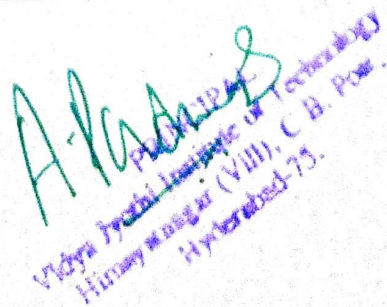 PRINCIPAL
Vidya Jyothi Institute of Technology
Himayatnagar (Vill), C. B. Post.
Hyderabad-75.